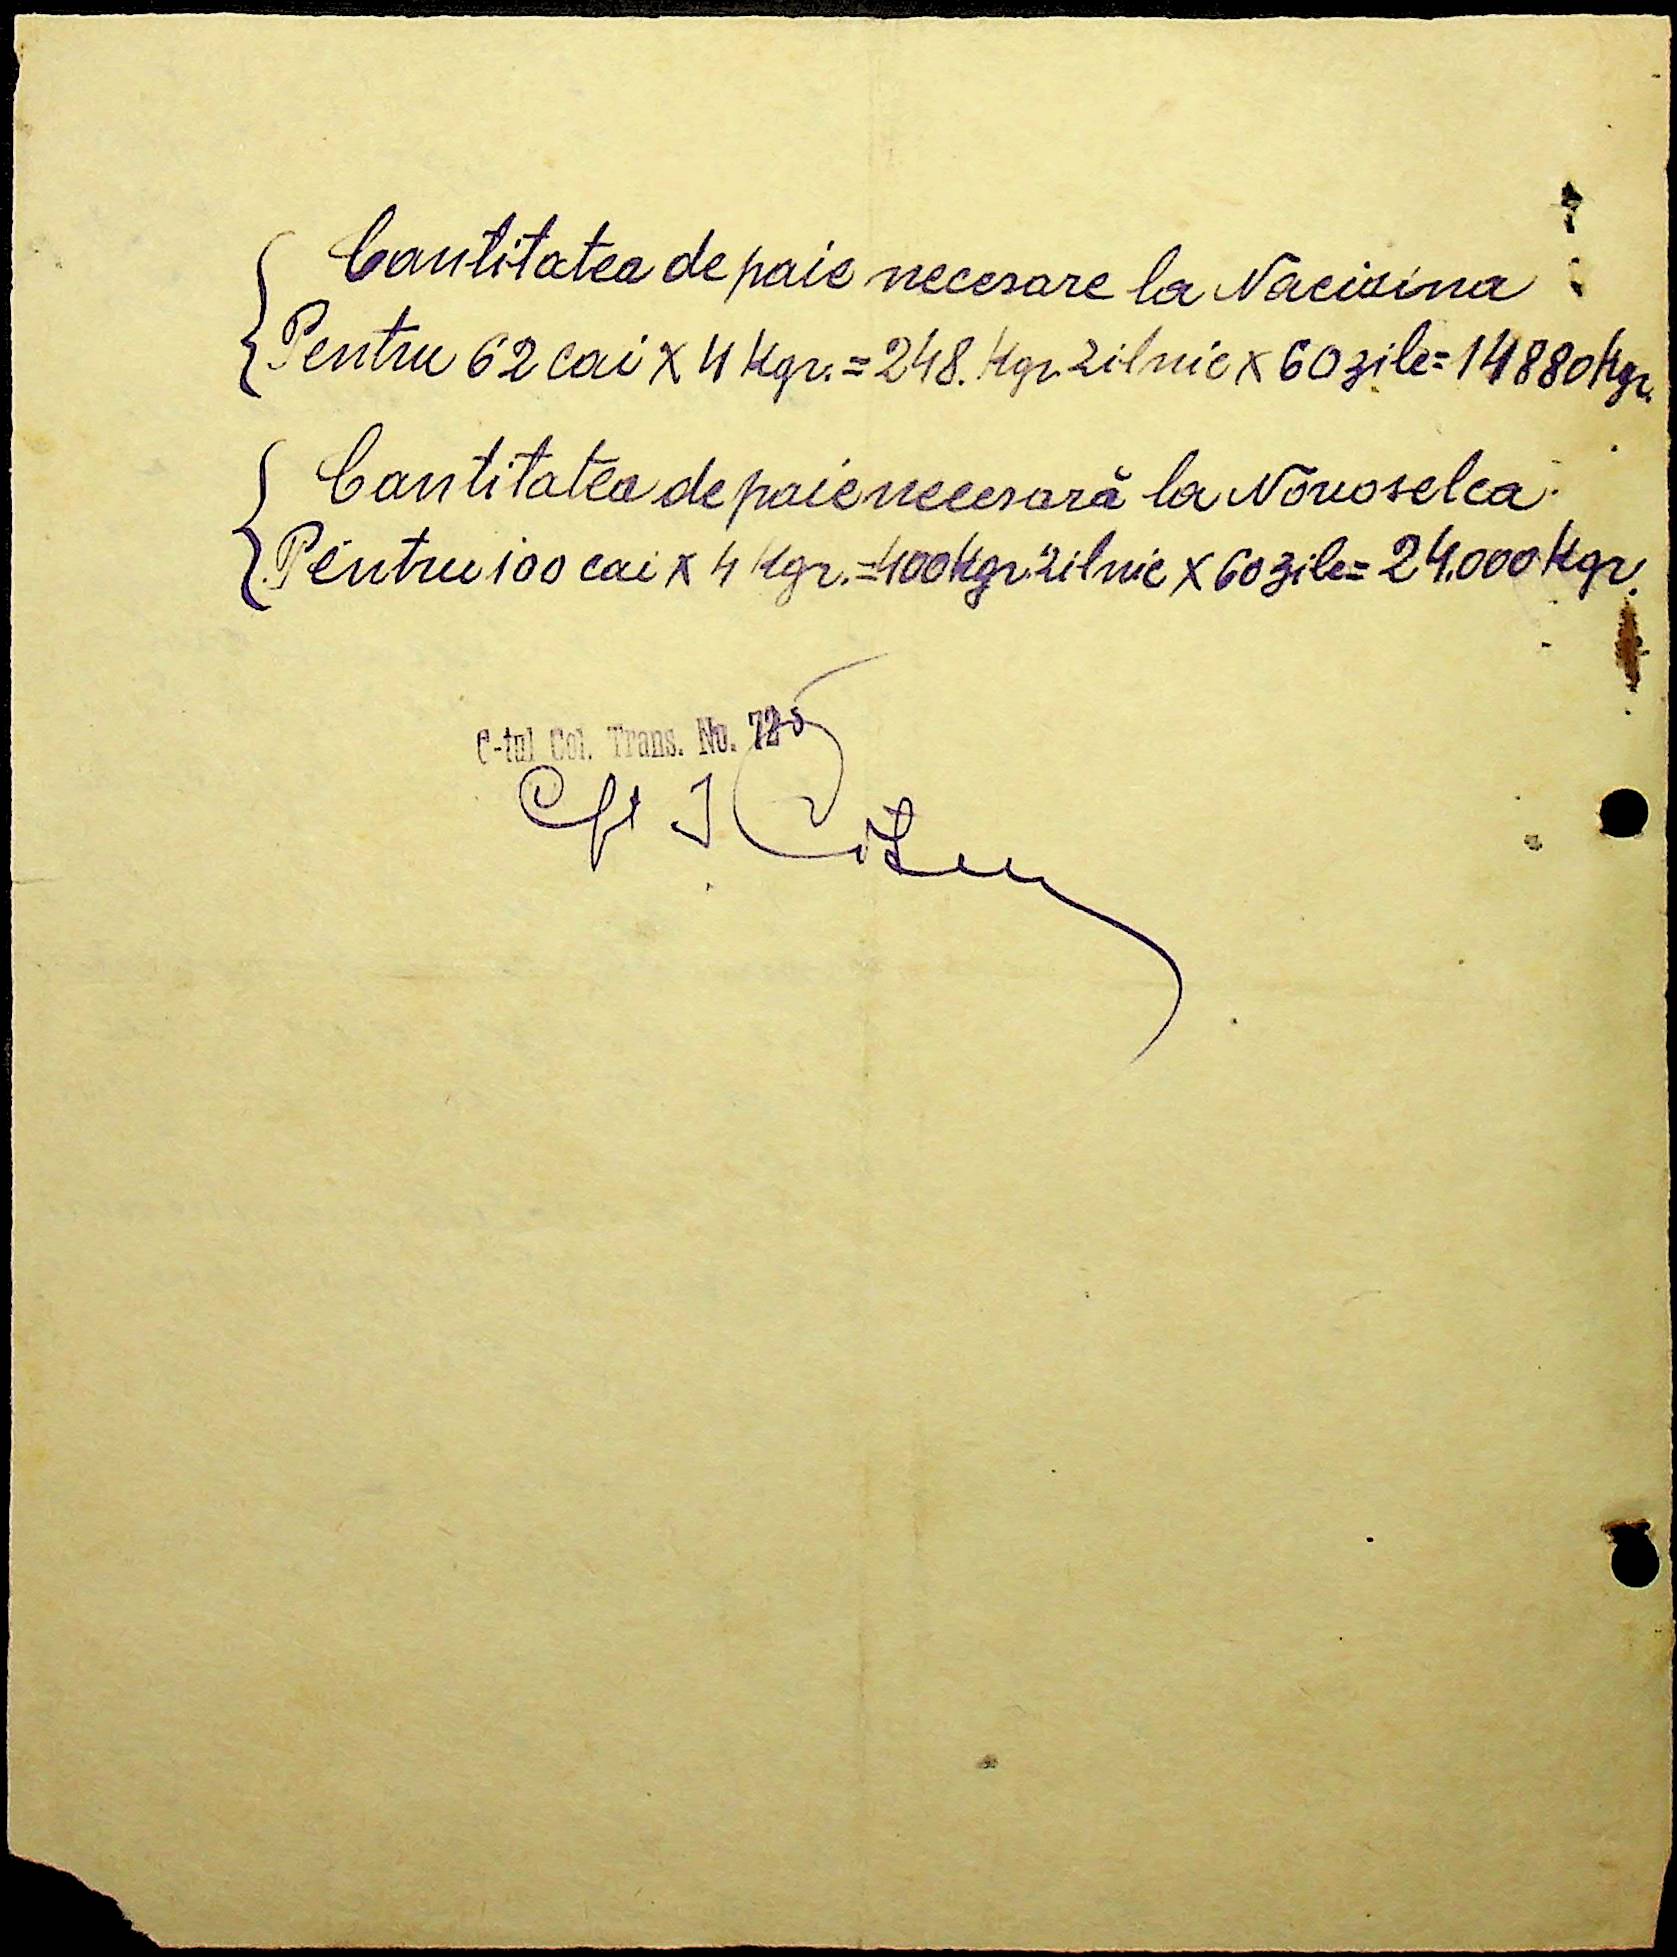 Cantitatea de paie necesare la Nacisina
Pentru 62 cai x 4 Kgr. = 248. Kgr. zilnic x 60 zile = 14880 Kgr.
Cantitatea de paie necesară la Novoselca.
Pentru 100 cai x 4 Kgr. = 400 Kgr. zilnic x 60 zile = 24.000 Kgr.
C-tul Col. Trans. No. 725
Cpt I